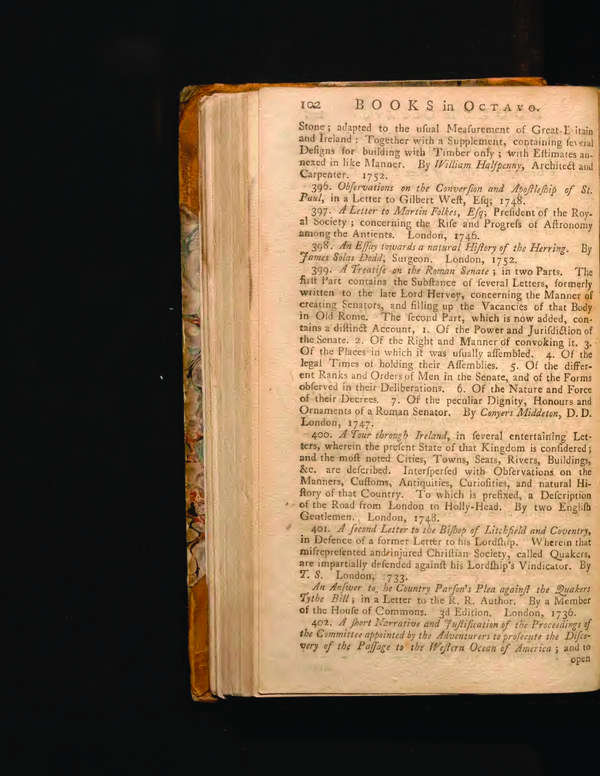 102 BOOKS in OCTAVO.
Stone; adapted to the uſual Meaſurement of Great-B itain
and Ireland: Together with a Supplement, containing ſeveral
Deſigns for building with Timber only; with Eſtimates an-
nexed in like Manner. By William Halfpenny, Architect and
Carpenter. 1752.
396. Obſervations on the Converſion and Apoſtleſhip of St.
Paul, in a Letter to Gilbert Weſt, Eſq; 1748.
397. A Letter to Martin Folkes, Eſq; Preſident of the Roy-
al Society; concerning the Riſe and Progreſs of Aſtronomy
among the Antients. London, 1746.
398. An Eſſay towards a natural Hiſtory of the Herring. By
James Solas Dodd, Surgeon. London, 1752.
399. A Treatiſe on the Roman Senate; in two Parts. The
firſt Part contains the Subſtance of ſeveral Letters, formerly
written to the late Lord Hervey, concerning the Manner of
creating Senators, and filling up the Vacancies of that Body
in Old Rome. The ſecond Part, which is now added, con-
tains a diſtinct Account, 1. Of the Power and Juriſdiction of
the Senate. 2. Of the Right and Manner of convoking it. 3.
Of the Places in which it was uſually aſſembled. 4. Of the
legal Times of holding their Aſſemblies. 5. Of the differ-
ent Ranks and Orders of Men in the Senate, and of the Forms
obſerved in their Deliberations. 6. Of the Nature and Force
of their Decrees. 7. Of the peculiar Dignity, Honours and
Ornaments of a Roman Senator. By Conyers Middleton, D. D.
London, 1747.
400. A Tour through Ireland, in ſeveral entertaining Let-
ters, wherein the preſent State of that Kingdom is conſidered;
and the moſt noted Cities, Towns, Seats, Rivers, Buildings,
&c. are deſcribed. Interſperſed with Obſervations on the
Manners, Cuſtoms, Antiquities, Curioſities, and natural Hi-
ſtory of that Country. To which is prefixed, a Deſcription
of the Road from London to Holly-Head. By two Engliſh
Gentlemen. London, 1748.
401. A ſecond Letter to the Biſhop of Litchfield and Coventry,
in Defence of a former Letter to his Lordſhip. Wherein that
miſrepreſented and injured Chriſtian Society, called Quakers,
are impartially defended againſt his Lordſhip's Vindicator. By
T. S. London, 733.
An Anſwer to he Country Parſon's Plea againſt the Quakers
Tythe Bill; in a Letter to the R. R. Author. By a Member
of the Houſe of Commons. 3d Edition. London, 1736.
402. A ſhort Narrative and Juſtification of the Proceedings of
the Committee appointed by the Adventurers to proſecute the Diſco-
very of the Paſſage to the Weſtern Ocean of America; and to
open